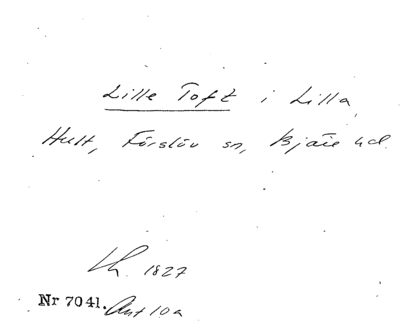 Lille Toft i Lilla
Hult, Förslöv sn, Bjäre hd.
Lh. 1827
Nr 7041. Ant 10a